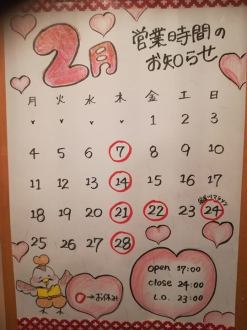 2月
営業時間の
お知らせ
月 火 水 木 金 土 日
1 2 3
4 5 6 7 8 9 10
11 12 13 14 15 16 17
18 19 20 21 22 23 24
25 26 27 28
○→お休み
open 17:00
close 24:00
L.O. 23:00